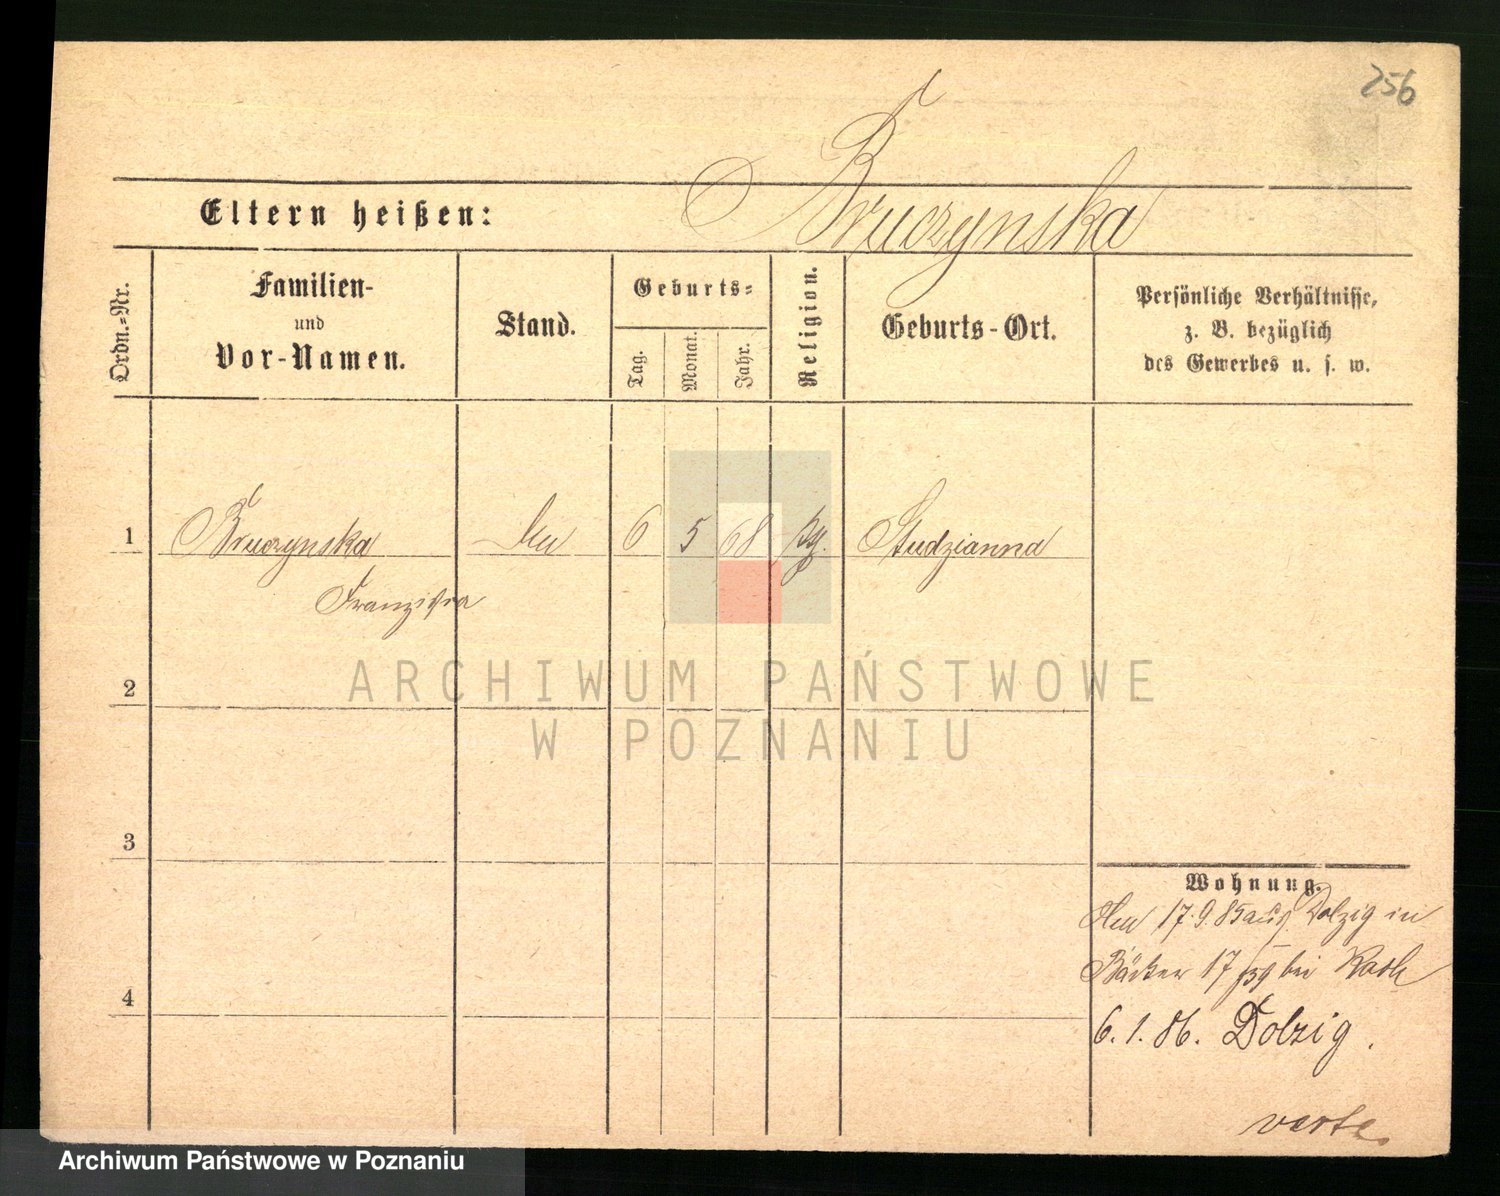 256
Eltern heißen:
Bruczynska
Ordn.-Nr.
Familien-
und
Vor-Namen.
Stand.
Geburts-
Tag.
Monat.
Jahr.
Religion.
Geburts-Ort.
Persönliche Verhältnisse,
z. B. bezüglich
des Gewerbes u. s. w.
1 Bruczynska 6 5 68 Studzianna
Franziska
2
3
4
Wohnung.
17.9.85 aus Dolzig in
Bäcker 17 bei
6.1.86. Dolzig.
verte.
ARCHIWUM PAŃSTWOWE
W POZNANIU
Archiwum Państwowe w Poznaniu